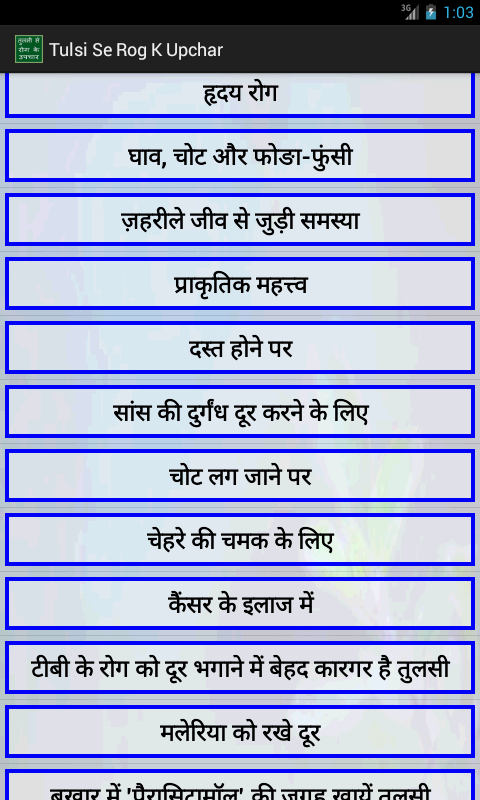 3G
1:03
तुलसी से
रोग के
उपचार
Tulsi Se Rog K Upchar
हृदय रोग
घाव, चोट और फोङा-फुंसी
ज़हरीले जीव से जुड़ी समस्या
प्राकृतिक महत्त्व
दस्त होने पर
सांस की दुर्गंध दूर करने के लिए
चोट लग जाने पर
चेहरे की चमक के लिए
कैंसर के इलाज में
टीबी के रोग को दूर भगाने में बेहद कारगर है तुलसी
मलेरिया को रखे दूर
बुखार में 'पैरासिटामॉल' की जगह खायें तुलसी